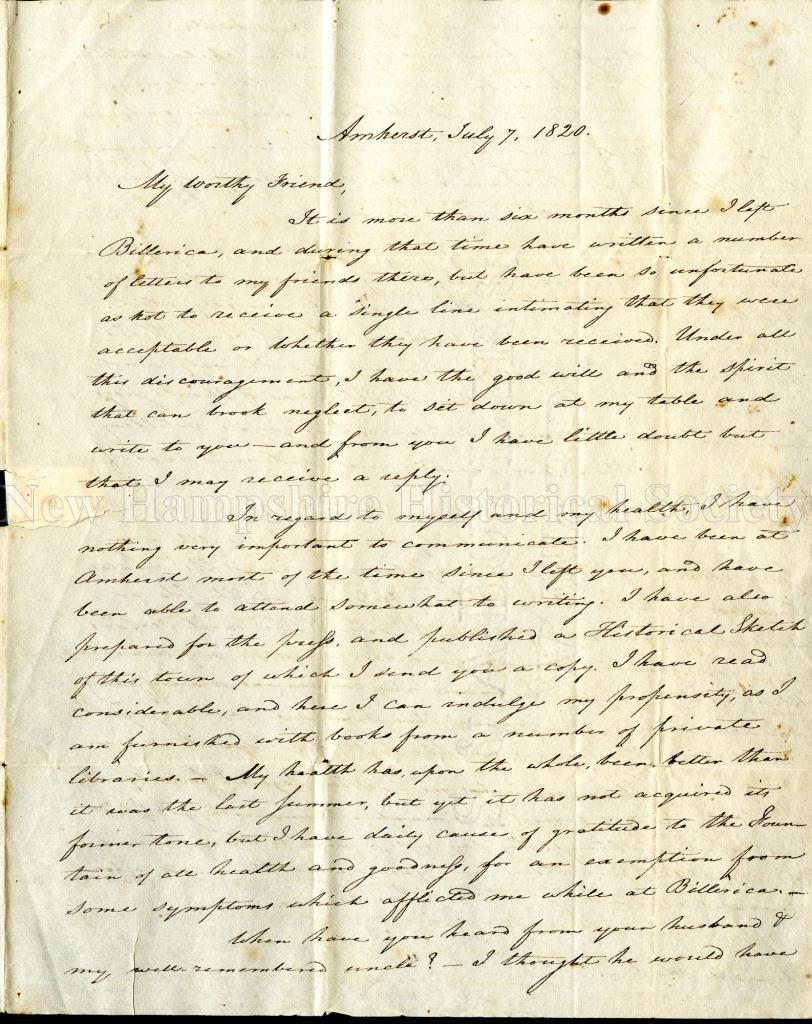 Amherst, July 7, 1820.
My worthy Friend,
It is more than six months since I left
Billerica, and during that time have written a number
of letters to my friends there, but have been so unfortunate
as not to receive a single line intimating that they were
acceptable or whether they have been received. Under all
this discouragement, I have the good will and the spirit
that can brook neglect, to set down at my table and
write to you — and from you I have little doubt but
that I may receive a reply.
New Hampshire Historical Society
In regard to myself and my health, I have
nothing very important to communicate. I have been at
Amherst most of the time since I left you, and have
been able to attend somewhat to writing. I have also
prepared for the press, and published a Historical Sketch
of this town of which I send you a copy. I have read
considerable, and here I can indulge my propensity, as I
am furnished with books from a number of private
libraries. — My health has, upon the whole, been better than
it was the last summer, but yet it has not acquired its
former tone, but I have daily cause of gratitude to the Foun-
tain of all health and goodness, for an exemption from
some symptoms which afflicted me while at Billerica. —
When have you heard from your husband &
my well-remembered uncle? — I thought he would have